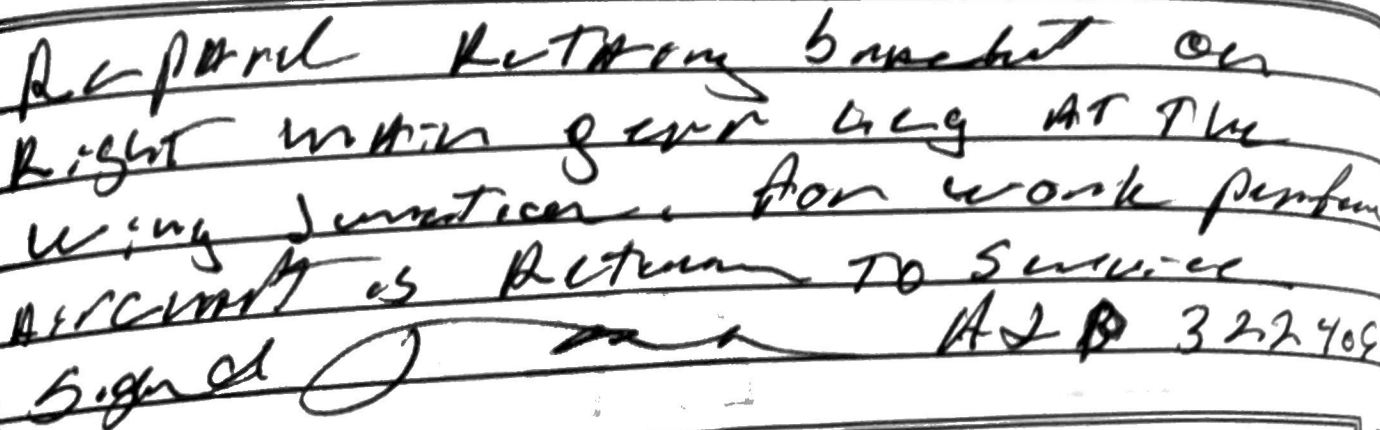 Repared Retaring bracket on
Right main gear leg AT The
wing Junction. for work perform
Aircraft is Return TO Service
Signed A&P 322409